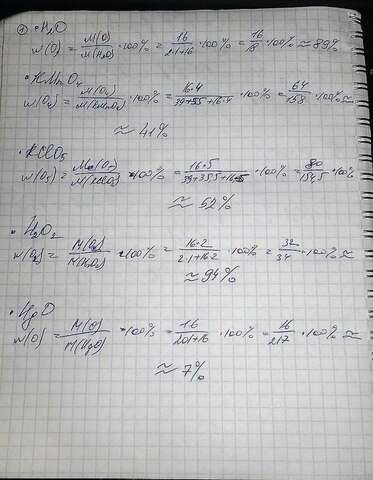 ① · H₂O
w(O) = M(O)/M(H₂O) · 100% = 16/2·1+16 · 100% = 16/18 · 100% ≈ 89%
· KMnO₄
w(O₄) = M(O₄)/M(KMnO₄) · 100% = 16·4/39+55+16·4 · 100% = 64/158 · 100% ≈
≈ 41%
· KClO₅
w(O₅) = M(O₅)/M(KClO₅) · 100% = 16·5/39+35,5+16·5 · 100% = 80/154,5 · 100%
≈ 52%
· H₂O₂
w(O₂) = M(O₂)/M(H₂O₂) · 100% = 16·2/2·1+16·2 · 100% = 32/34 · 100% ≈
≈ 94%
· HgO
w(O) = M(O)/M(HgO) · 100% = 16/201+16 · 100% = 16/217 · 100% ≈
≈ 7%